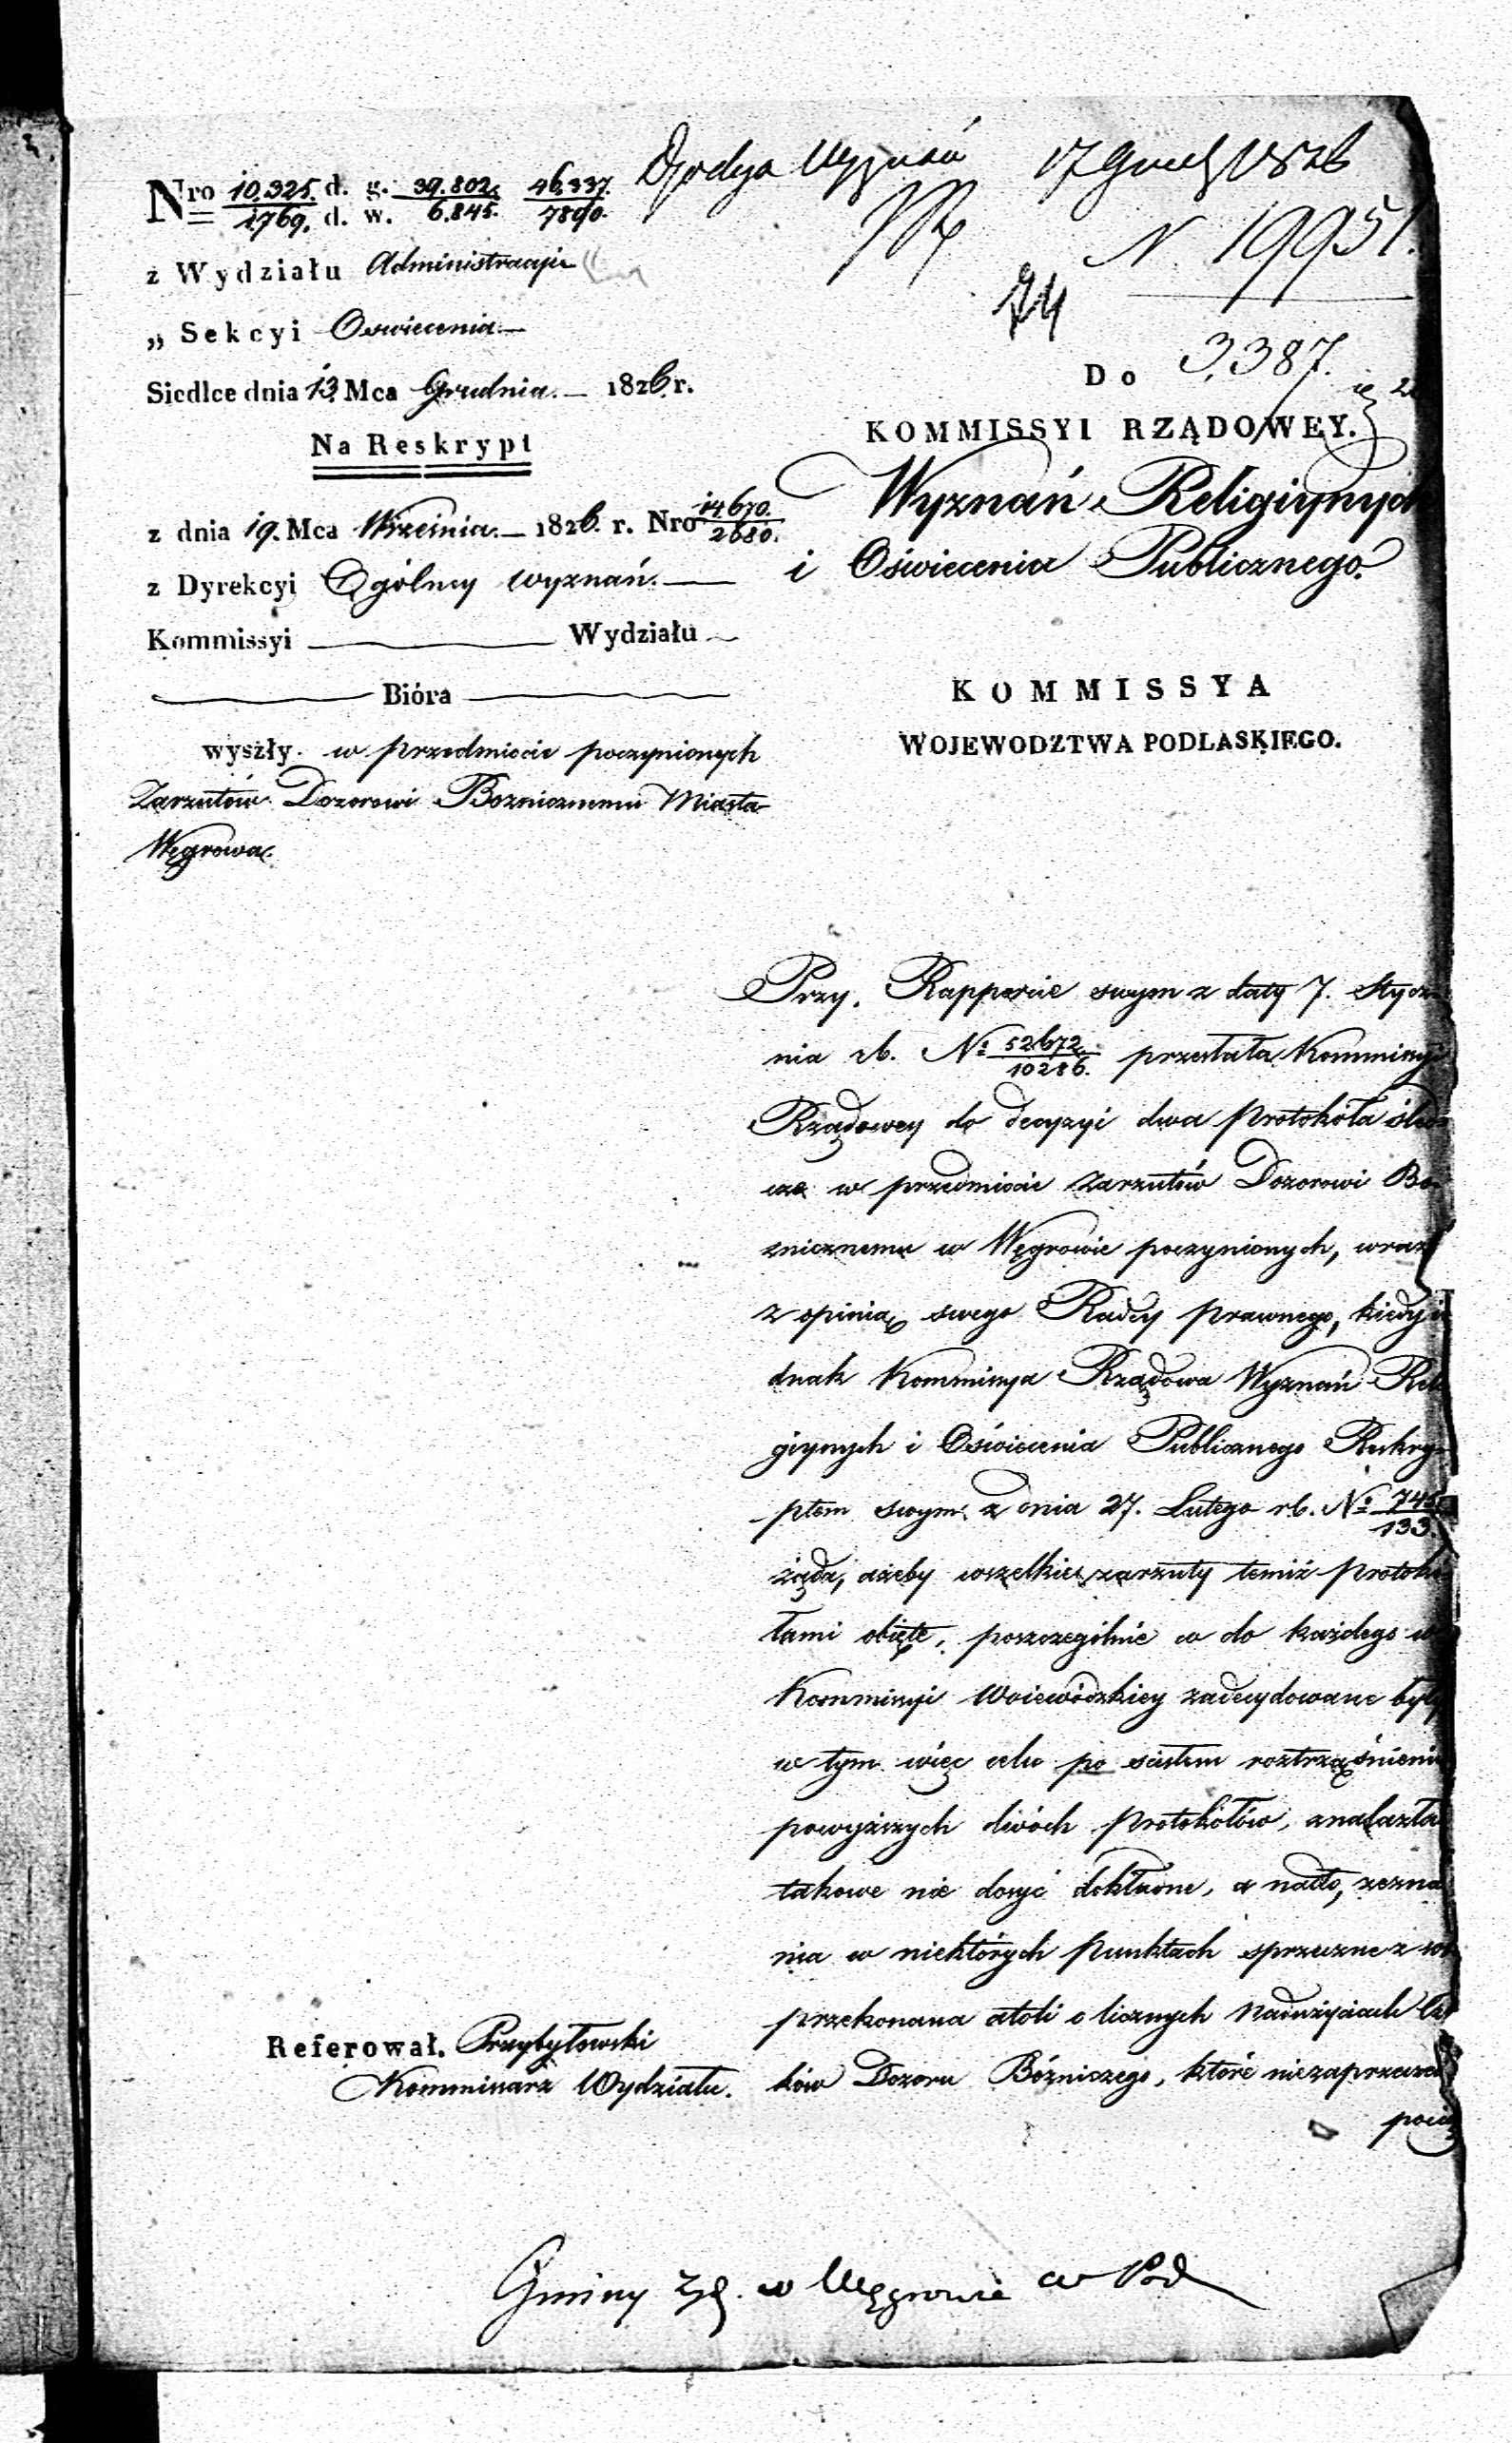 Nro 10.325. d. g. 39.802. 46.337.
1769. d. w. 6.845. 7890.
z Wydziału Administracyi
„ Sekcyi Oswiecenia.—
Siedlce dnia 13. Mca Grudnia.— 1826. r.
Na Reskrypt
z dnia 19. Mca Wrzesnia.— 1826. r. Nro 14670.
2680.
z Dyrekcyi Ogólney wyznań.—
Kommissyi — Wydziału —
— Bióra —
wyszły w przedmiocie poczynionych
Zarzutów Dozorowi Boznicznemu Miasta
Węgrowa.
17 1826
N. 19951.
74
3.387.
Do
KOMMISSYI RZĄDOWEY.
Wyznań Religiynych
i Oświecenia Publicznego.
KOMMISSYA
WOJEWODZTWA PODLASKIEGO.
Przy Rapporcie swym z daty 7. Stycz
nia rb. Nº 52672.
10286. przesłała Kommissyi
Rządowey do decyzyi dwa protokoła śled
cze w przedmiocie zarzutów Dozorowi Bo
znicznemu w Węgrowie poczynionych, wraz
z opinią swego Radcy prawnego, kiedy ie
dnak Kommissya Rządowa Wyznań Reli
giynych i Oświecenia Publicznego Reskry
ptem swym z dnia 27. Lutego rb. Nº 745
133.
żąda, ażeby wszelkie zarzuty temiż protokó
łami obięte, poszczególnie co do każdego w
Kommissyi Woiewódzkiey zadecydowane były
w tym więc celu po scisłem roztrząśnieniu
powyższych dwóch protokołów, znalazła
takowe nie dosyć dokładne, a nadto, zezna
nia w niektórych punktach sprzeczne z so
przekonana atoli o licznych nadużyciach Czł
ków Dozoru Bóżniczego, które niezaprzecze
pocią
Referował. Przybyłowski
Kommissarz Wydziału.
Gminy Żyd. w Węgrowie